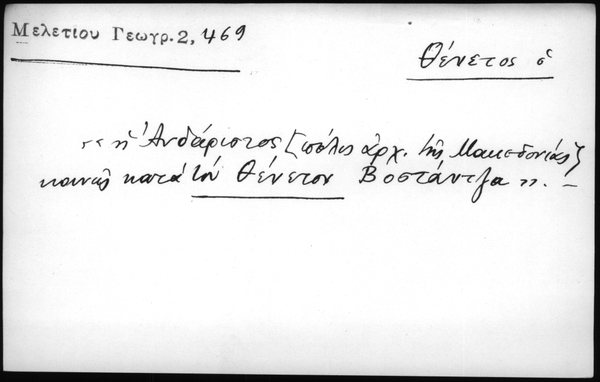 Μελετίου Γεωγρ. 2, 469
Θένετος ὁ
« ἡ Ἀνδάριστος [πόλις ἀρχ. τῆς Μακεδονίας]
κοινῶς κατὰ τὸν Θένετον Βοστάντζα ». –